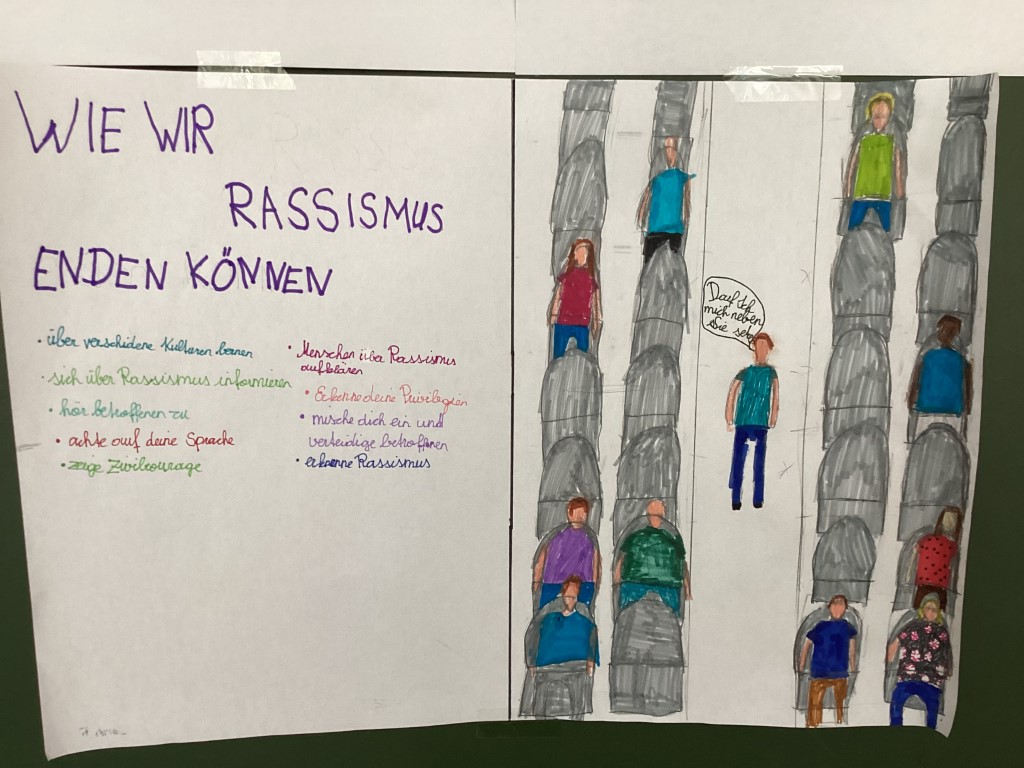 WIE WIR
RASSISMUS
ENDEN KÖNNEN
• über verschidene Kulturen lernen
• sich über Rassismus informieren
• hör betroffenen zu
• achte auf deine Sprache
• zeige Zivilcourage
• Menschen über Rassismus
aufklären
• Erkenne deine Privilegien
• mische dich ein und
verteidige betroffenen
• erkenne Rassismus
Darf Ich
mich neben
Sie